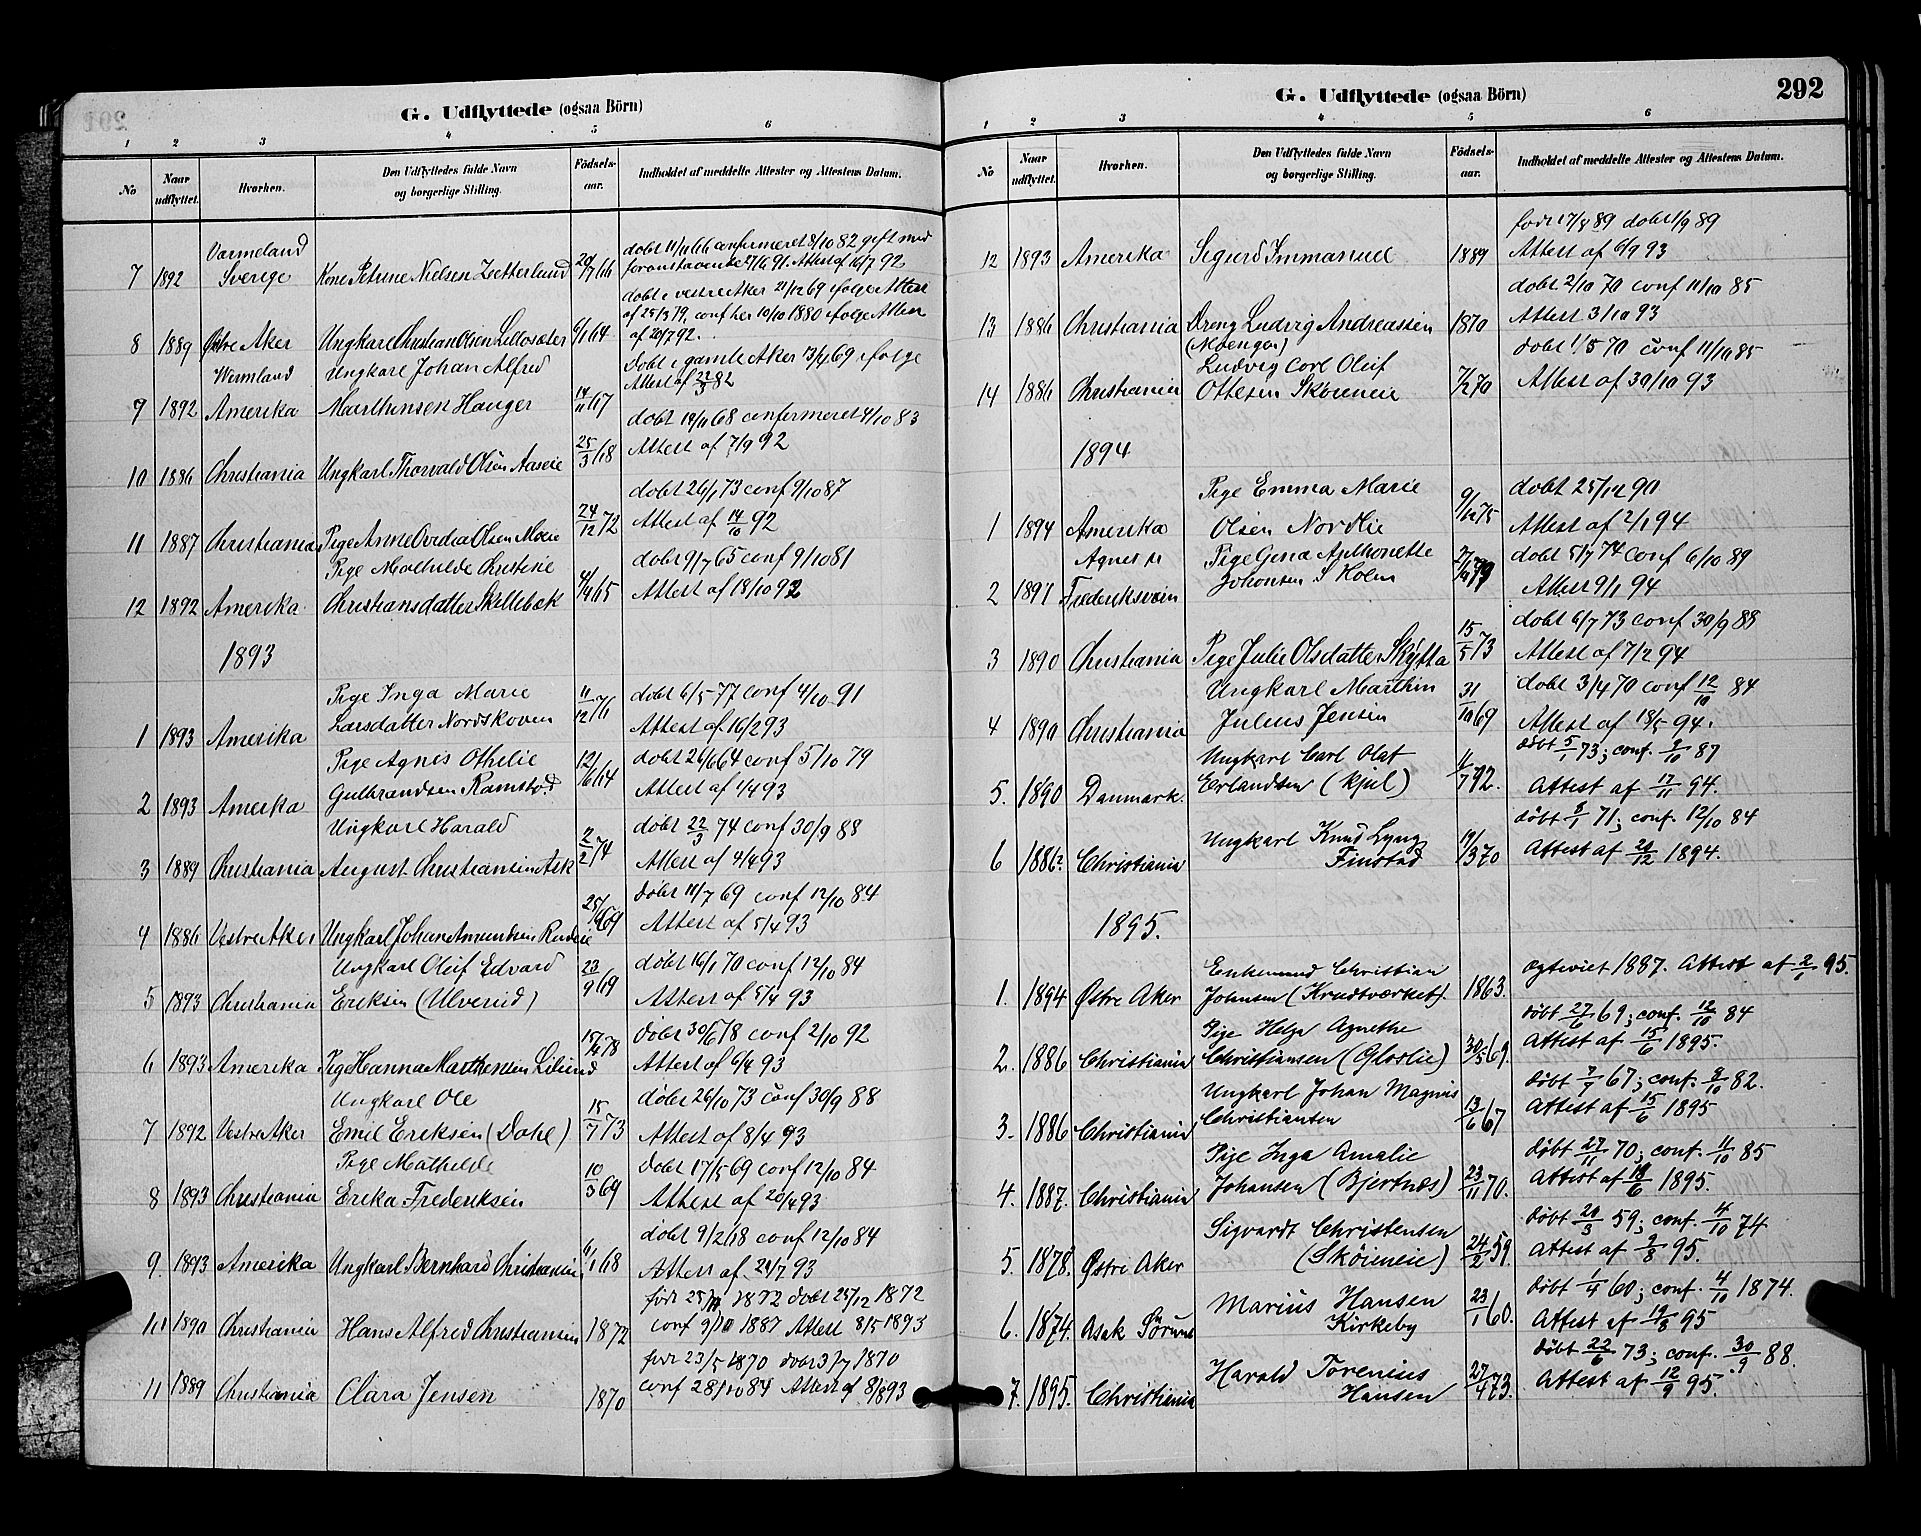 G. Udflyttede (ogsaa Börn)
1 2 3 4 5 6
No Naar udflyttet. Hvorhen. Den Udflyttedes fulde Navn og borgerlige Stilling. Födsels-aar. Indholdet af meddelte Attester og Attestens Datum.
Varmeland dobt 11/11 66 confermeret 8/10 82 gift med
7 1892 Sverige Kone Petrine Nielsen Zetterlund 20/7 66 foranstaaende 27/6 91. Attest af 16/7 92
dobt i vestre Aker 21/12 69 ifølge Attest
af 25/3 79, conf her 10/10 1880 ifolge Attest
8 1889 Østre Aker Ungkarl Christian Olsen Lillosæter 6/1 64 af 20/7 92.
Wermland Ungkarl Johan Alfred Dobt i gamle Aker 13/4 69 ifolge
Attest af 22/3 82
9 1892 Amerika Marthinsen Hauger 14/11 67
dobt 14/11 68 confermeret 4/10 83
10 1886 Christiania Ungkarl Thorvald Olsen Aaseie 25/3 68 Attest af 7/9 92
dobt 26/1 73 conf 9/10 87
11 1887 Christiania Pige Anne Ovidia Olsen Moeie 24/12 72 Attest af 14/10 92
Pige Mathilde Christine dobt 9/7 65 conf 9/10 81
12 1892 Amerika Christiansdatter Skillebæk 4/4 65 Attest af 18/10 92
1893
Pige Inga Marie 11/12 76 dobt 6/5 77 conf 4/10 91
1 1893 Amerika Larsdatter Nordskoven Attest af 16/2 93
Pige Agnes Othelie 12/6 64 dobt 26/6 64 conf 5/10 79
2 1893 Amerika Gulbrandsen Ramstad Attest af 4/4 93
Ungkarl Harald dobt 22/3 74 conf 30/9 88
3 1889 Christiania August Christiansen Ask 2/2 74 Attest af 4/4 93
döbt 11/7 69 conf 12/10 84
4 1886 Vestre Aker Ungkarl Johan Amundsen Rudeie 25/6 69 Attest af 5/4 93
Ungkarl Oluf Edvard döbt 16/1 70 conf 12/10 84
5 1893 Christiania Eriksen (Ulverud) 23/9 69 Attest af 5/4 93
döbt 30/6 78 conf 2/10 92
6 1893 Amerika Pige Hanna Marthensen Lilund 15/4 78 Attest af 6/4 93
Ungkarl Ole döbt 26/10 73 conf 30/9 88
7 1892 Vestre Aker Emil Eriksen (Dahl) 15/7 73 Attest af 8/4 93
Pige Mathilde Döbt 17/5 69 conf 12/10 84
8 1893 Christiania Erika Frederiksen 10/3 69 Attest af 20/4 93
döbt 9/2 68 conf 12/10 84
9. 1893 Amerika Ungkarl Bernhard Christiansen 6/1 68 Attest af 29/7 93
född 25/ 1872 dobt 25/12 1872
10 1890 Christiania Hans Alfred Christiansen 1872 conf 9/10 1887 Attest 8/5 1893
född 23/5 1870 dobt 3/7 1870
11 1889 Christiania Clara Jensen 1870 conf 28/10 84 Attest af 8/8 93
G. Udflyttede (ogsaa Börn) 292
1 2 3 4 5 6
No Naar udflyttet. Hvorhen. Den Udflyttedes fulde Navn og borgerlige Stilling. Födsels-aar. Indholdet af meddelte Attester og Attestens Datum.
født 17/8 89 dobt 1/9 89
12 1893 Amerika Sigurd Immanuel 1889 Attest af 6/9 93
dobt 2/10 70 conf 11/10 85
13 1886 Christiania Dreng Ludvig Andreassen 1870 Attest 3/10 93
(Moengen) dobt 1/5 70 conf 11/10 85
Ludvig Carl Oluf
14 1886 Christiania Ottesen Skoieneie 7/2 70 Attest af 30/10 93
1894
Pige Emma Marie dobt 25/12 90
1 1894 Amerika Olsen Nordlie 9/12 75 Attest af 2/1 94
Agnes Pige Gina Anthonette dobt 5/7 74 conf 6/10 89
2 1891 Frederiksværn Johansen S Holm Attest 9/1 94
dobt 6/7 73 conf 30/9 88
3 1890 Christiania Pige Julie Olsdatter Skytta 15/5 73 Attest af 7/2 94
Ungkarl Marthin 31/10 69 dobt 3/4 70 conf 12/10 84
4 1890 Christiania Julius Jensen Attest af 18/5 94.
Ungkarl Carl Olaf döbt 5/1 73; conf. 9/10 87
5. 1890 Danmark. Erlandsen (Kjul) 11/7 72. Attest af 17/11 94.
döbt 8/1 71; conf. 12/10 84
6 1886? Christiania Ungkarl Knud Lyng Finstad 19/3 70 Attest af 20/12 1894.
1895.
Enkemand Christian Ægteviet 1887. Attest af 2/1 95.
1. 1894 Østre Aker Johnsen (Krudtværket). 1863.
Pige Helga Agnethe döbt 27/6 69; conf. 12/10 84
2. 1886 Christiania Christiansen (Gloslie) 30/5 69. Attest af 15/6 1895.
Ungkarl Johan Magnus döbt 7/7 67; conf. 8/10 82.
3. 1886 Christiania Christiansen 13/6 67 Attest af 15/6 1895
Pige Inga Amalie döbt 27/11 70; conf. 11/10 85
4. 1887. Christiania Johansen (Bjertnæs) 23/11 70. Attest af 18/6 1895.
Sigvardt Christensen döbt 20/3 59; conf. 4/10 74
5. 1878. Østre Aker (Skøieneie) 24/2 59. Attest af 9/8 95.
Marius Hansen döbt 1/4 60; conf. 4/10 1874.
6. 1874. Asak Sörum Kirkeby 23/1 60. Attest af 19/8 95
Harald Torenius döbt 22/6 73; conf. 30/9 88.
7. 1895. Christiania Hansen 27/4 73. Attest af 12/9 95.